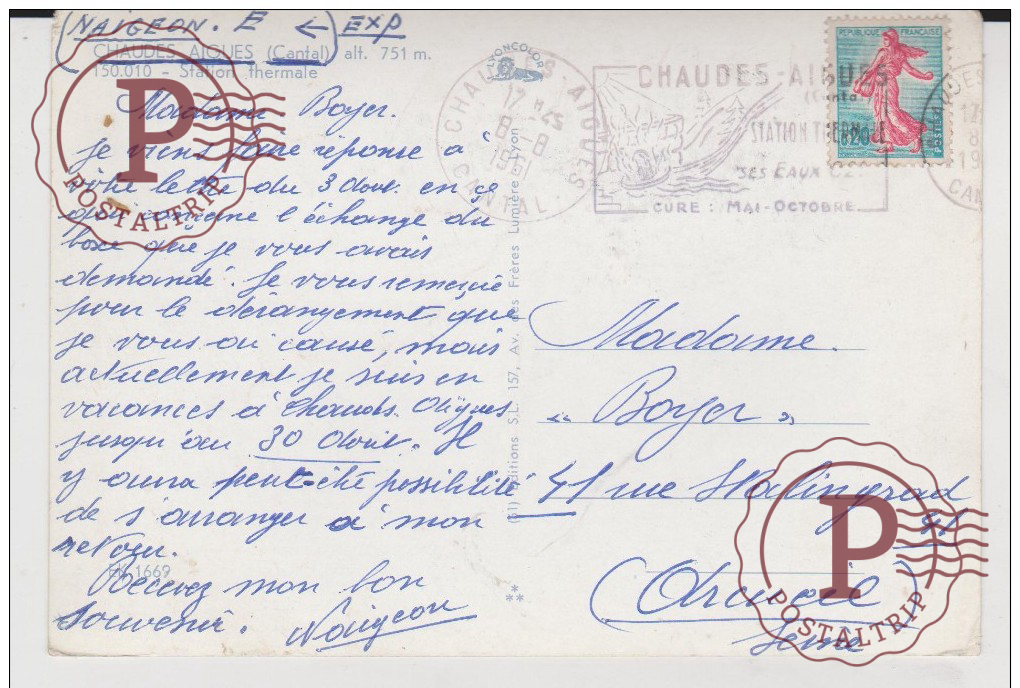 NAIGEON. E ← EXP
CHAUDES AIGUES (Cantal) alt. 751 m.
150.010 - Station thermale
Madame Boyer.
Je viens faire réponse à
votre lettre du 3 Aout. en ce
qui concerne l'échange du
boxe que je vous avais
demandé. Je vous remercie
pour le dérangement que
je vous ai causé, mais
actuellement je suis en
vacances à Chauds. Aigues
jusqu'au 30 Aout. Il
y aura peut-être possibilité
de s'arranger à mon
retour.
EK 1669
Recevez mon bon
souvenir. Naigeon
LYONCOLOR
Editions S.L. 157, Av. des Frères Lumière Lyon
**
CHAUDES-AIGUES
17 H 25
8 - 8
CANTAL
CHAUDES-AIGUES
STATION THERM
SES EAUX 82°
CURE : MAI-OCTOBRE
REPUBLIQUE FRANÇAISE
0,20
POSTES
17
8
19
CAN
Madame.
" Boyer "
41 rue Stalingrad
41
Arcueil
Seine
P
POSTALTRIP
P
POSTALTRIP